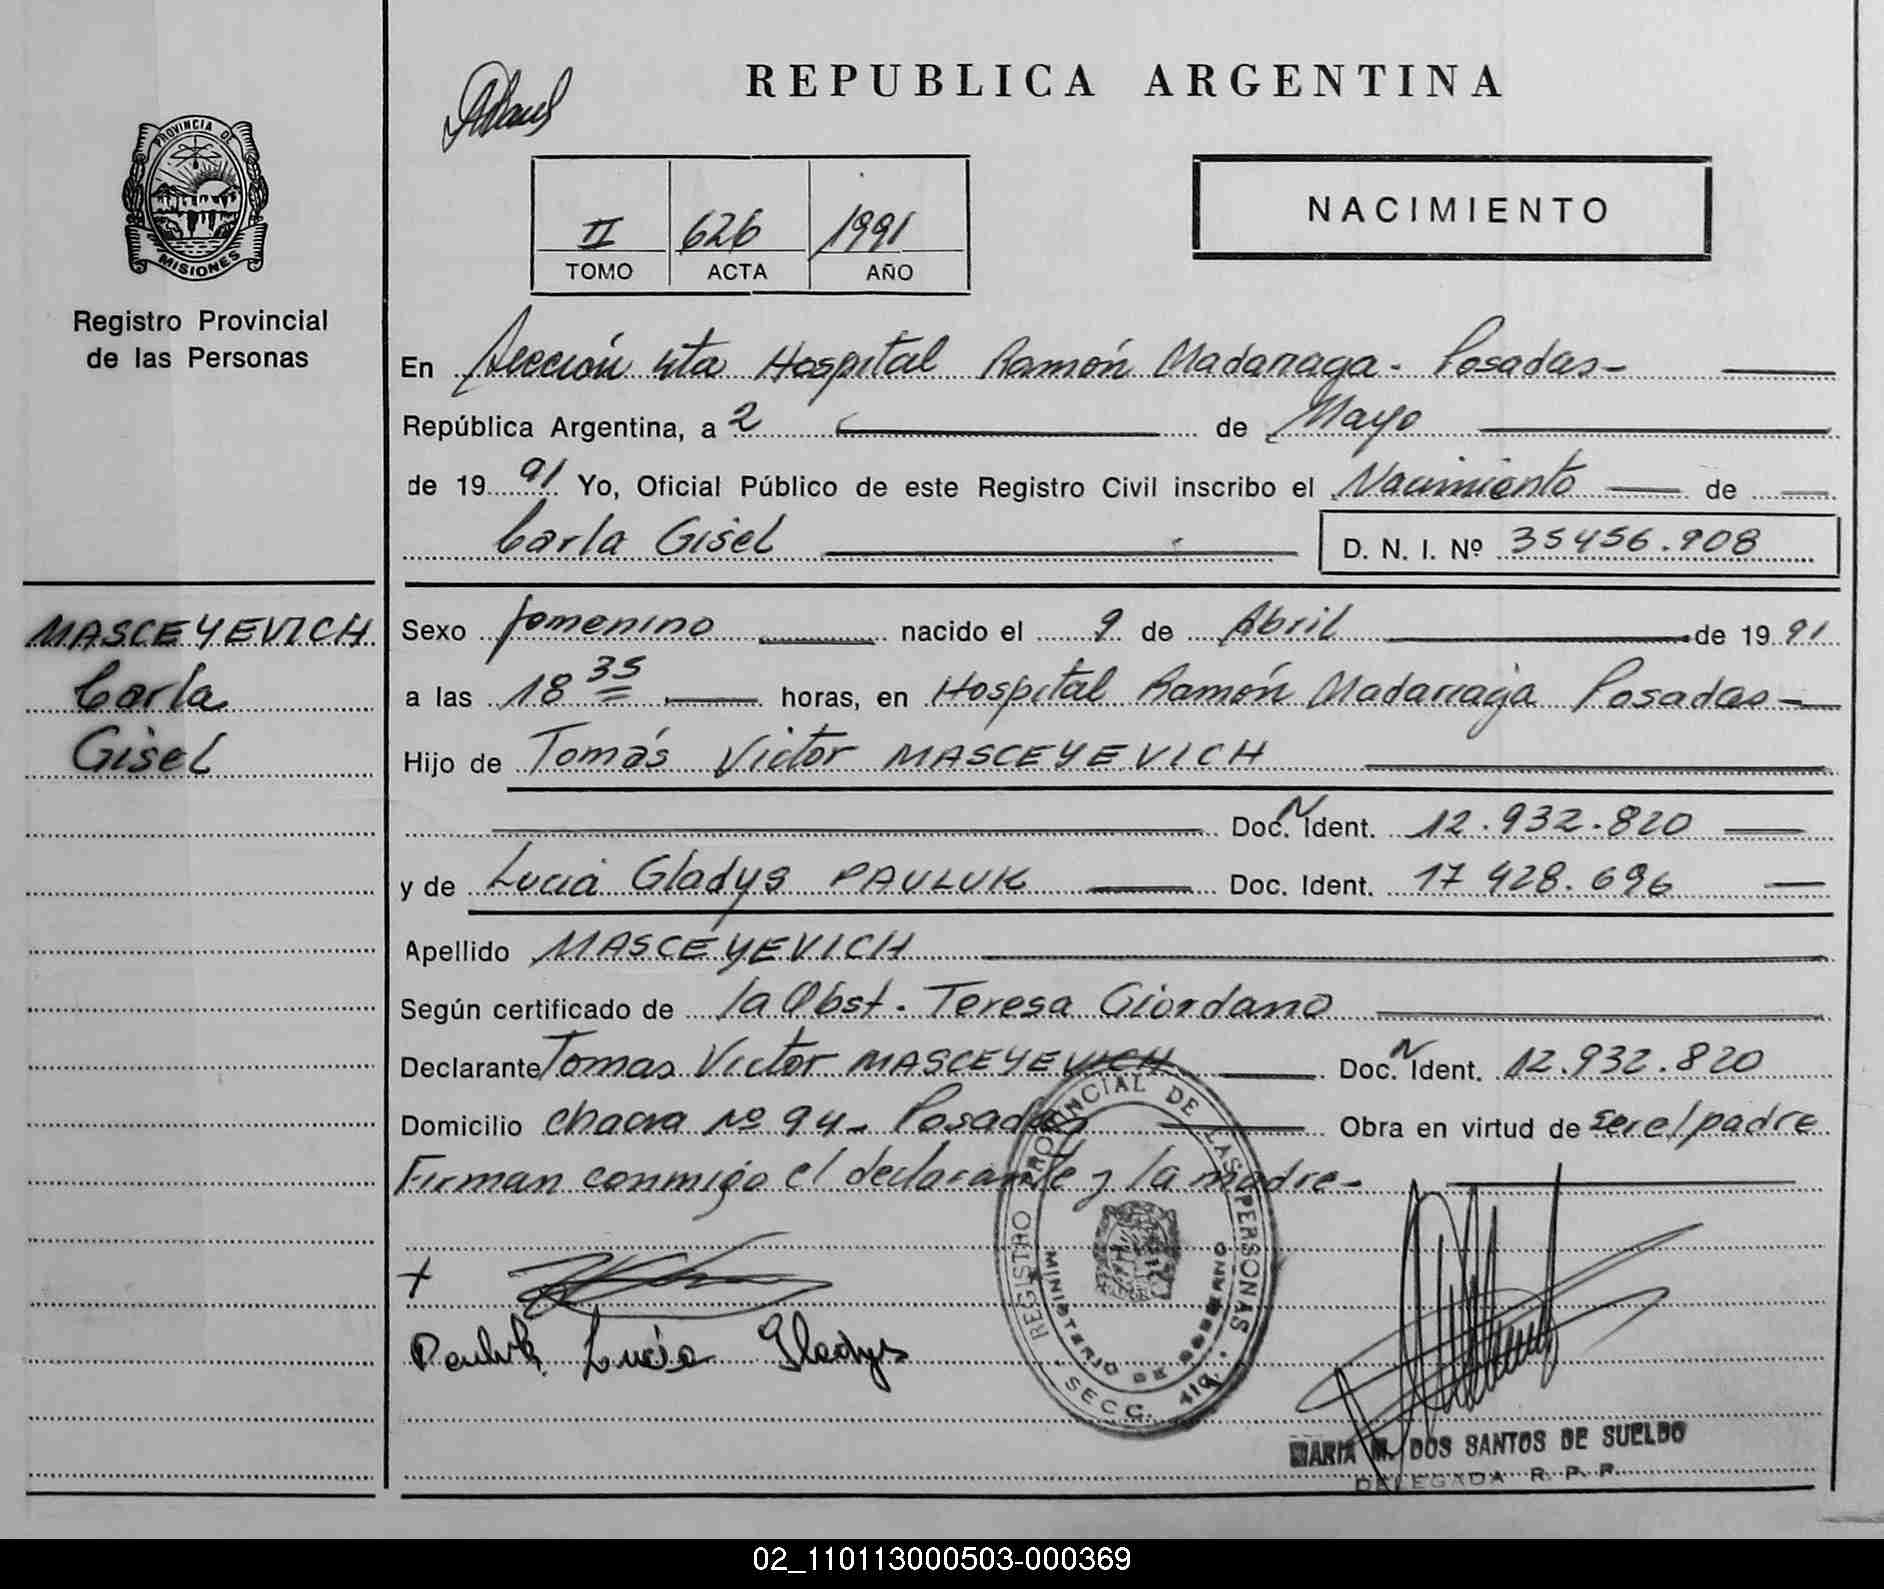 REPUBLICA ARGENTINA
PROVINCIA DE
MISIONES
Registro Provincial
de las Personas
II 626 1991
TOMO ACTA AÑO
NACIMIENTO
En Sección 4ta Hospital Ramón Madariaga - Posadas -
República Argentina, a 2 de Mayo
de 19 91 Yo, Oficial Público de este Registro Civil inscribo el Nacimiento de
Carla Gisel D. N. I. Nº 35456.908
MASCEYEVICH
Carla
Gisel
Sexo femenino nacido el 9 de Abril de 19 91
a las 18 35 horas, en Hospital Ramón Madariaga Posadas -
Hijo de Tomás Victor MASCEYEVICH
Doc. N Ident. 12.932.820
y de Lucia Gladys PAULUK Doc. Ident. 17 428.696
Apellido MASCEYEVICH
Según certificado de la Obst. Teresa Giordano
Declarante Tomas Victor MASCEYEVICH Doc. N Ident. 12.932.820
Domicilio chacra Nº 94 - Posadas Obra en virtud de ser el padre
Firman conmigo el declarante y la madre -
REGISTRO PROVINCIAL DE LAS PERSONAS
MINISTERIO DE GOBIERNO
SECC. 4ta.
+
Pauluk Lucia Gladys
MARIA M. DOS SANTOS DE SUELDO
DELEGADA R. P. P.
02_110113000503-000369